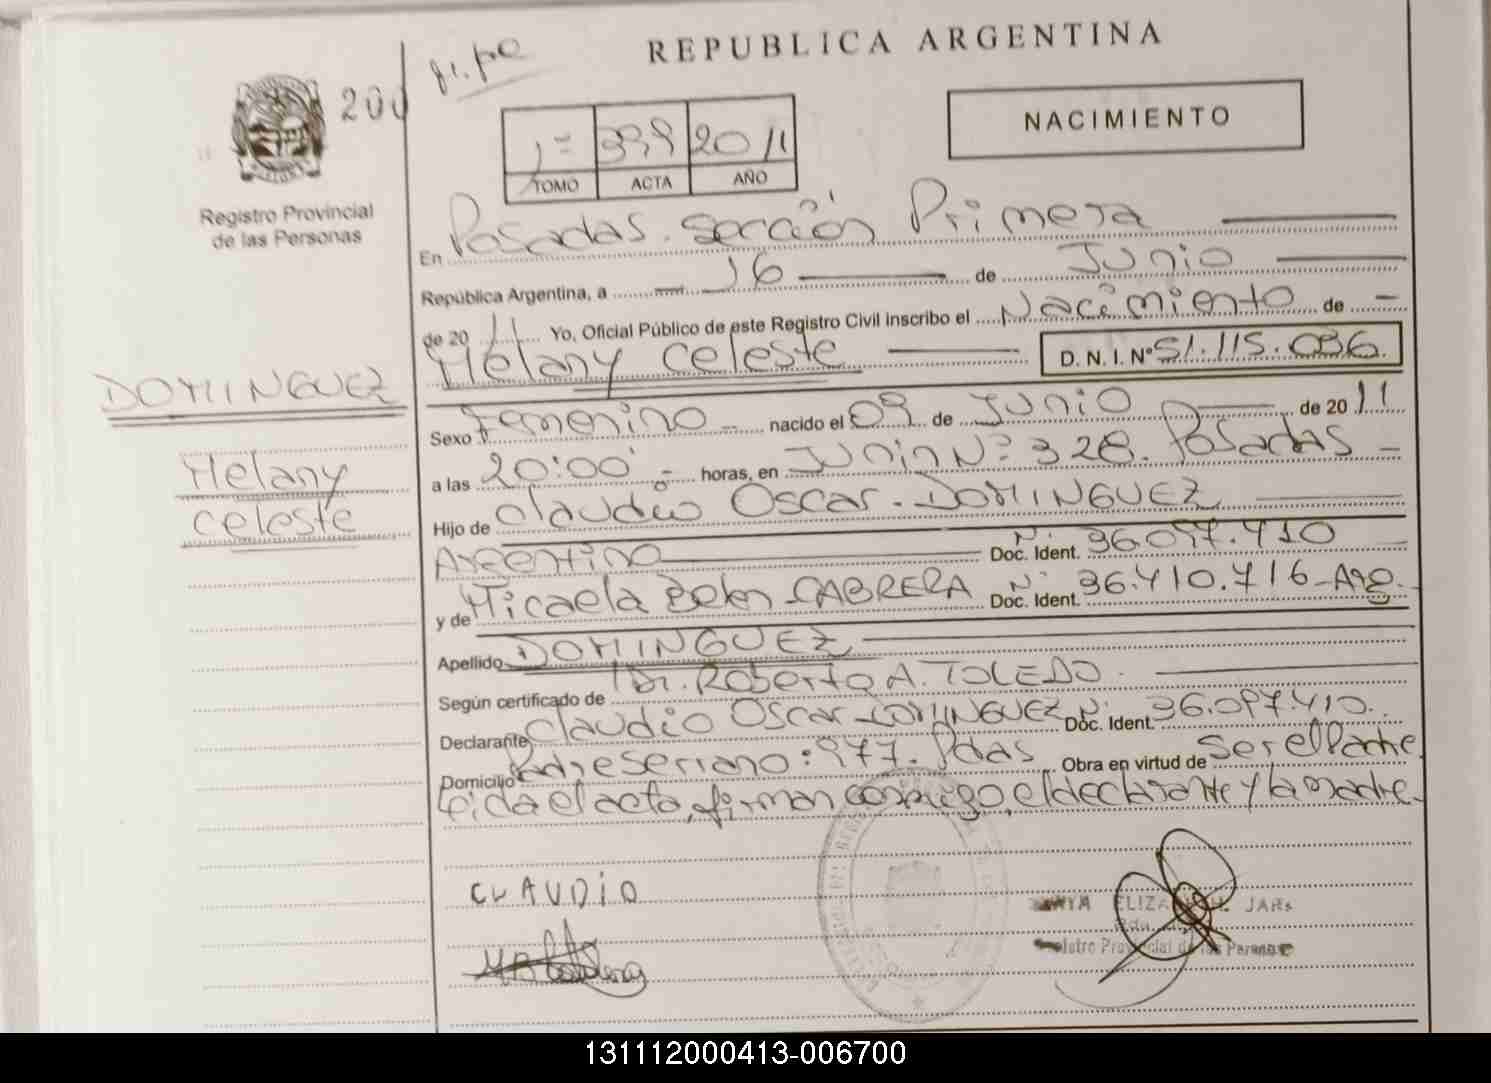 REPUBLICA ARGENTINA
200
Registro Provincial
de las Personas
NACIMIENTO
1= 399 2011
TOMO ACTA AÑO
En Posadas. Sección Primera
República Argentina, a 16 de Junio
de 2011 Yo, Oficial Público de este Registro Civil inscribo el Nacimiento de
Melany Celeste D. N. I. Nº 51.115.036.
DOMINGUEZ
Melany
Celeste
Sexo Femenino nacido el 09 de Junio de 2011
a las 20:00 horas, en Junin Nº 328. Posadas
Hijo de Claudio Oscar. DOMINGUEZ
Argentino Doc. Ident. Nº 36.097.410
y de Micaela Belen CABRERA Doc. Ident. Nº 36.410.716-Arg.
Apellido DOMINGUEZ
Según certificado de Dr. Roberto A. TOLEDO.
Declarante Claudio Oscar DOMINGUEZ Doc. Ident. Nº 36.097.410.
Domicilio Padre Seriano: 977. Pdas Obra en virtud de Ser el Padre
Leida el acta, firman conmigo, el declarante y la madre.
CLAUDIO
ELIZA
Registro Provincial de las Personas
131112000413-006700